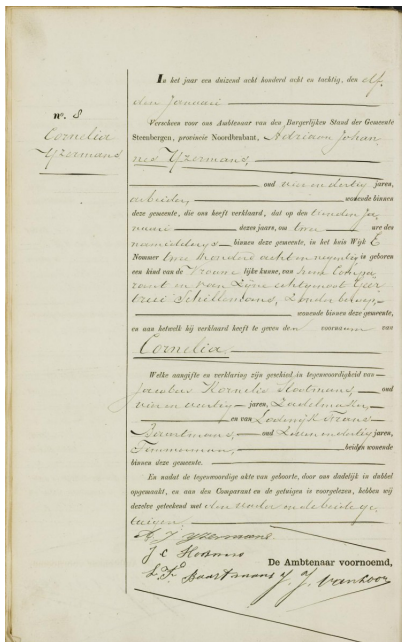 N°. 8
Cornelia
IJzermans
In het jaar een duizend acht honderd acht en tachtig, den elf
den Januari
Verscheen voor ons Ambtenaar van den Burgerlijken Stand der Gemeente
Steenbergen, provincie Noordbrabant, Adriaan Johan
nes IJzermans,
oud vier en dertig jaren,
arbeider, wonende binnen
deze gemeente, die ons heeft verklaard, dat op den tienden Ja
nuari dezes jaars, om twee ure des
namiddags binnen deze gemeente, in het huis Wijk E
Nommer twee honderd acht en negentig is geboren
een kind van de Vrouwelijke kunne, van hem Compa
rant en van zijne echtgenoot Geer
trui Schillemans, zonder beroep,
wonende binnen deze gemeente,
en aan hetwelk hij verklaard heeft te geven den voornaam van
Cornelia,
Welke aangifte en verklaring zijn geschied in tegenwoordigheid van
Jacobus Kornelis Slootmans, oud
vier en veertig jaren, Zadelmaker,
en van Lodewijk Frans
Baartmans, oud dertig jaren,
Timmerman, beiden wonende
binnen deze gemeente.
En nadat de tegenwoordige akte van geboorte, door ons dadelijk in dubbel
opgemaakt, en aan den Comparant en de getuigen is voorgelezen, hebben wij
dezelve geteekend met den Vader en de beide ge
tuigen.
A J IJzermans
J C
De Ambtenaar voornoemd,
L. F. Baartmans J. J. van Loon